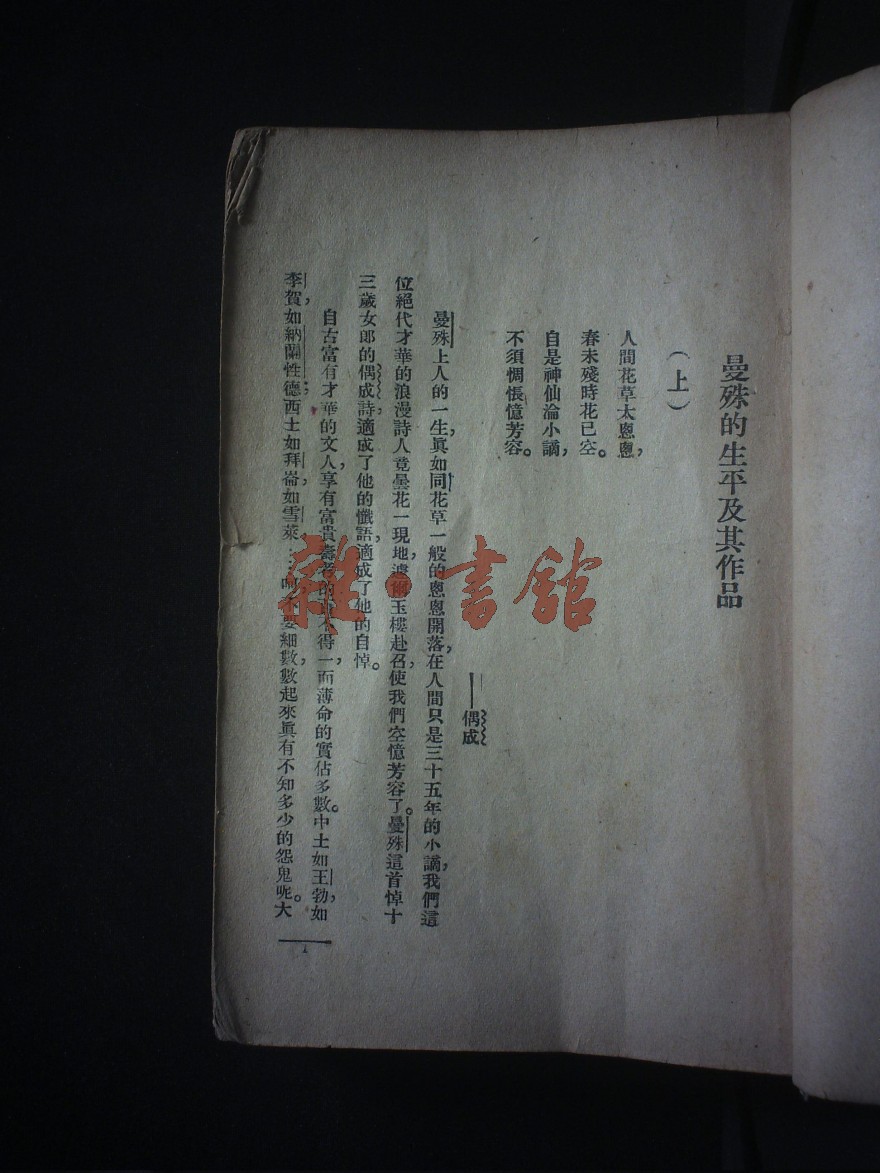 曼殊的生平及其作品
(上)
人間花草太悤悤，
春未殘時花已空。
自是神仙淪小謫，
不須惆悵憶芳容。
——偶成
曼殊上人的一生，眞如同花草一般的悤悤開落，在人間只是三十五年的小謫，我們這
位絕代才華的浪漫詩人竟曇花一現地，遽爾玉樓赴召，使我們空憶芳容了。曼殊這首悼十
三歲女郎的偶成詩，適成了他的懺語，適成了他的自悼。
自古富有才華的文人，享有富貴壽考的 得一，而薄命的實佔多數。中土如王勃，如
李賀，如納蘭性德；西土如拜崙，如雪萊…… 不要細數，數起來眞有不知多少的怨鬼呢。大
1
雜·書館